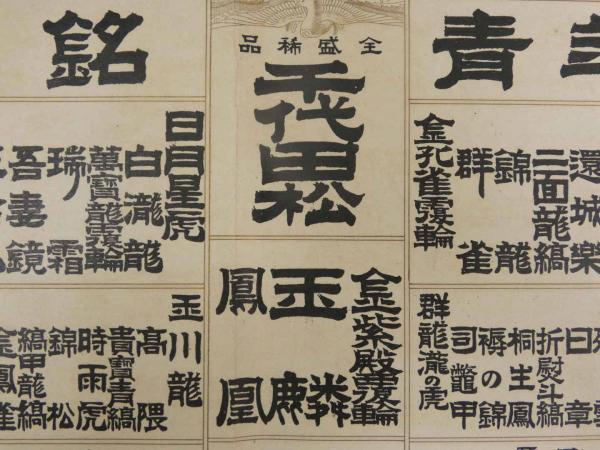 青
還城樂
三面龍縞
錦龍
群雀
金孔雀覆輪
日章
折熨斗縞
桐生鳳
褥の錦
司鼈甲
群龍瀧の虎
全盛稀品
千代田松
金紫殿覆輪
玉麟
鳳凰
銘
日月星虎
白瀧龍
萬寶龍覆輪
瑞霜
吾妻鏡
玉川龍
髙隈
貴寶青縞
時雨虎
錦松
縞甲龍縞
金鳳雀